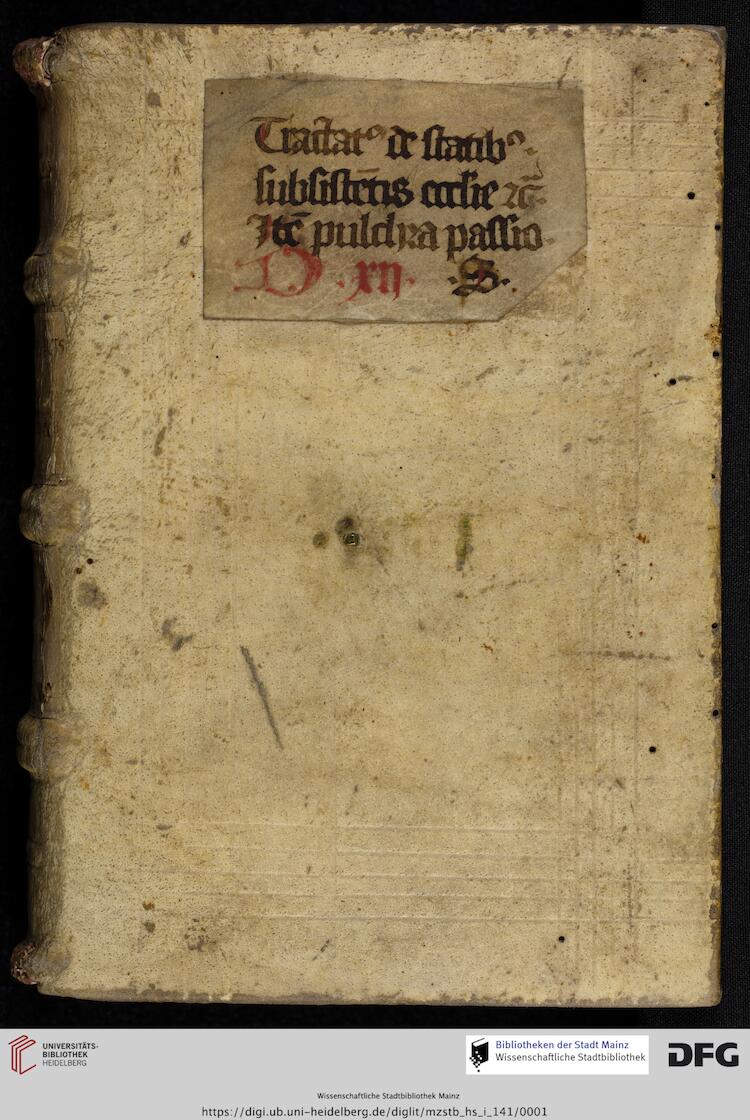 Tractatꝰ de statibꝰ
subsistētis eccl̄ie ꝛc̄.
Itē pulchra passio.
D . xij. .S.
UNIVERSITÄTS-
BIBLIOTHEK
HEIDELBERG
Bibliotheken der Stadt Mainz
Wissenschaftliche Stadtbibliothek
DFG
Wissenschaftliche Stadtbibliothek Mainz
https://digi.ub.uni-heidelberg.de/diglit/mzstb_hs_i_141/0001